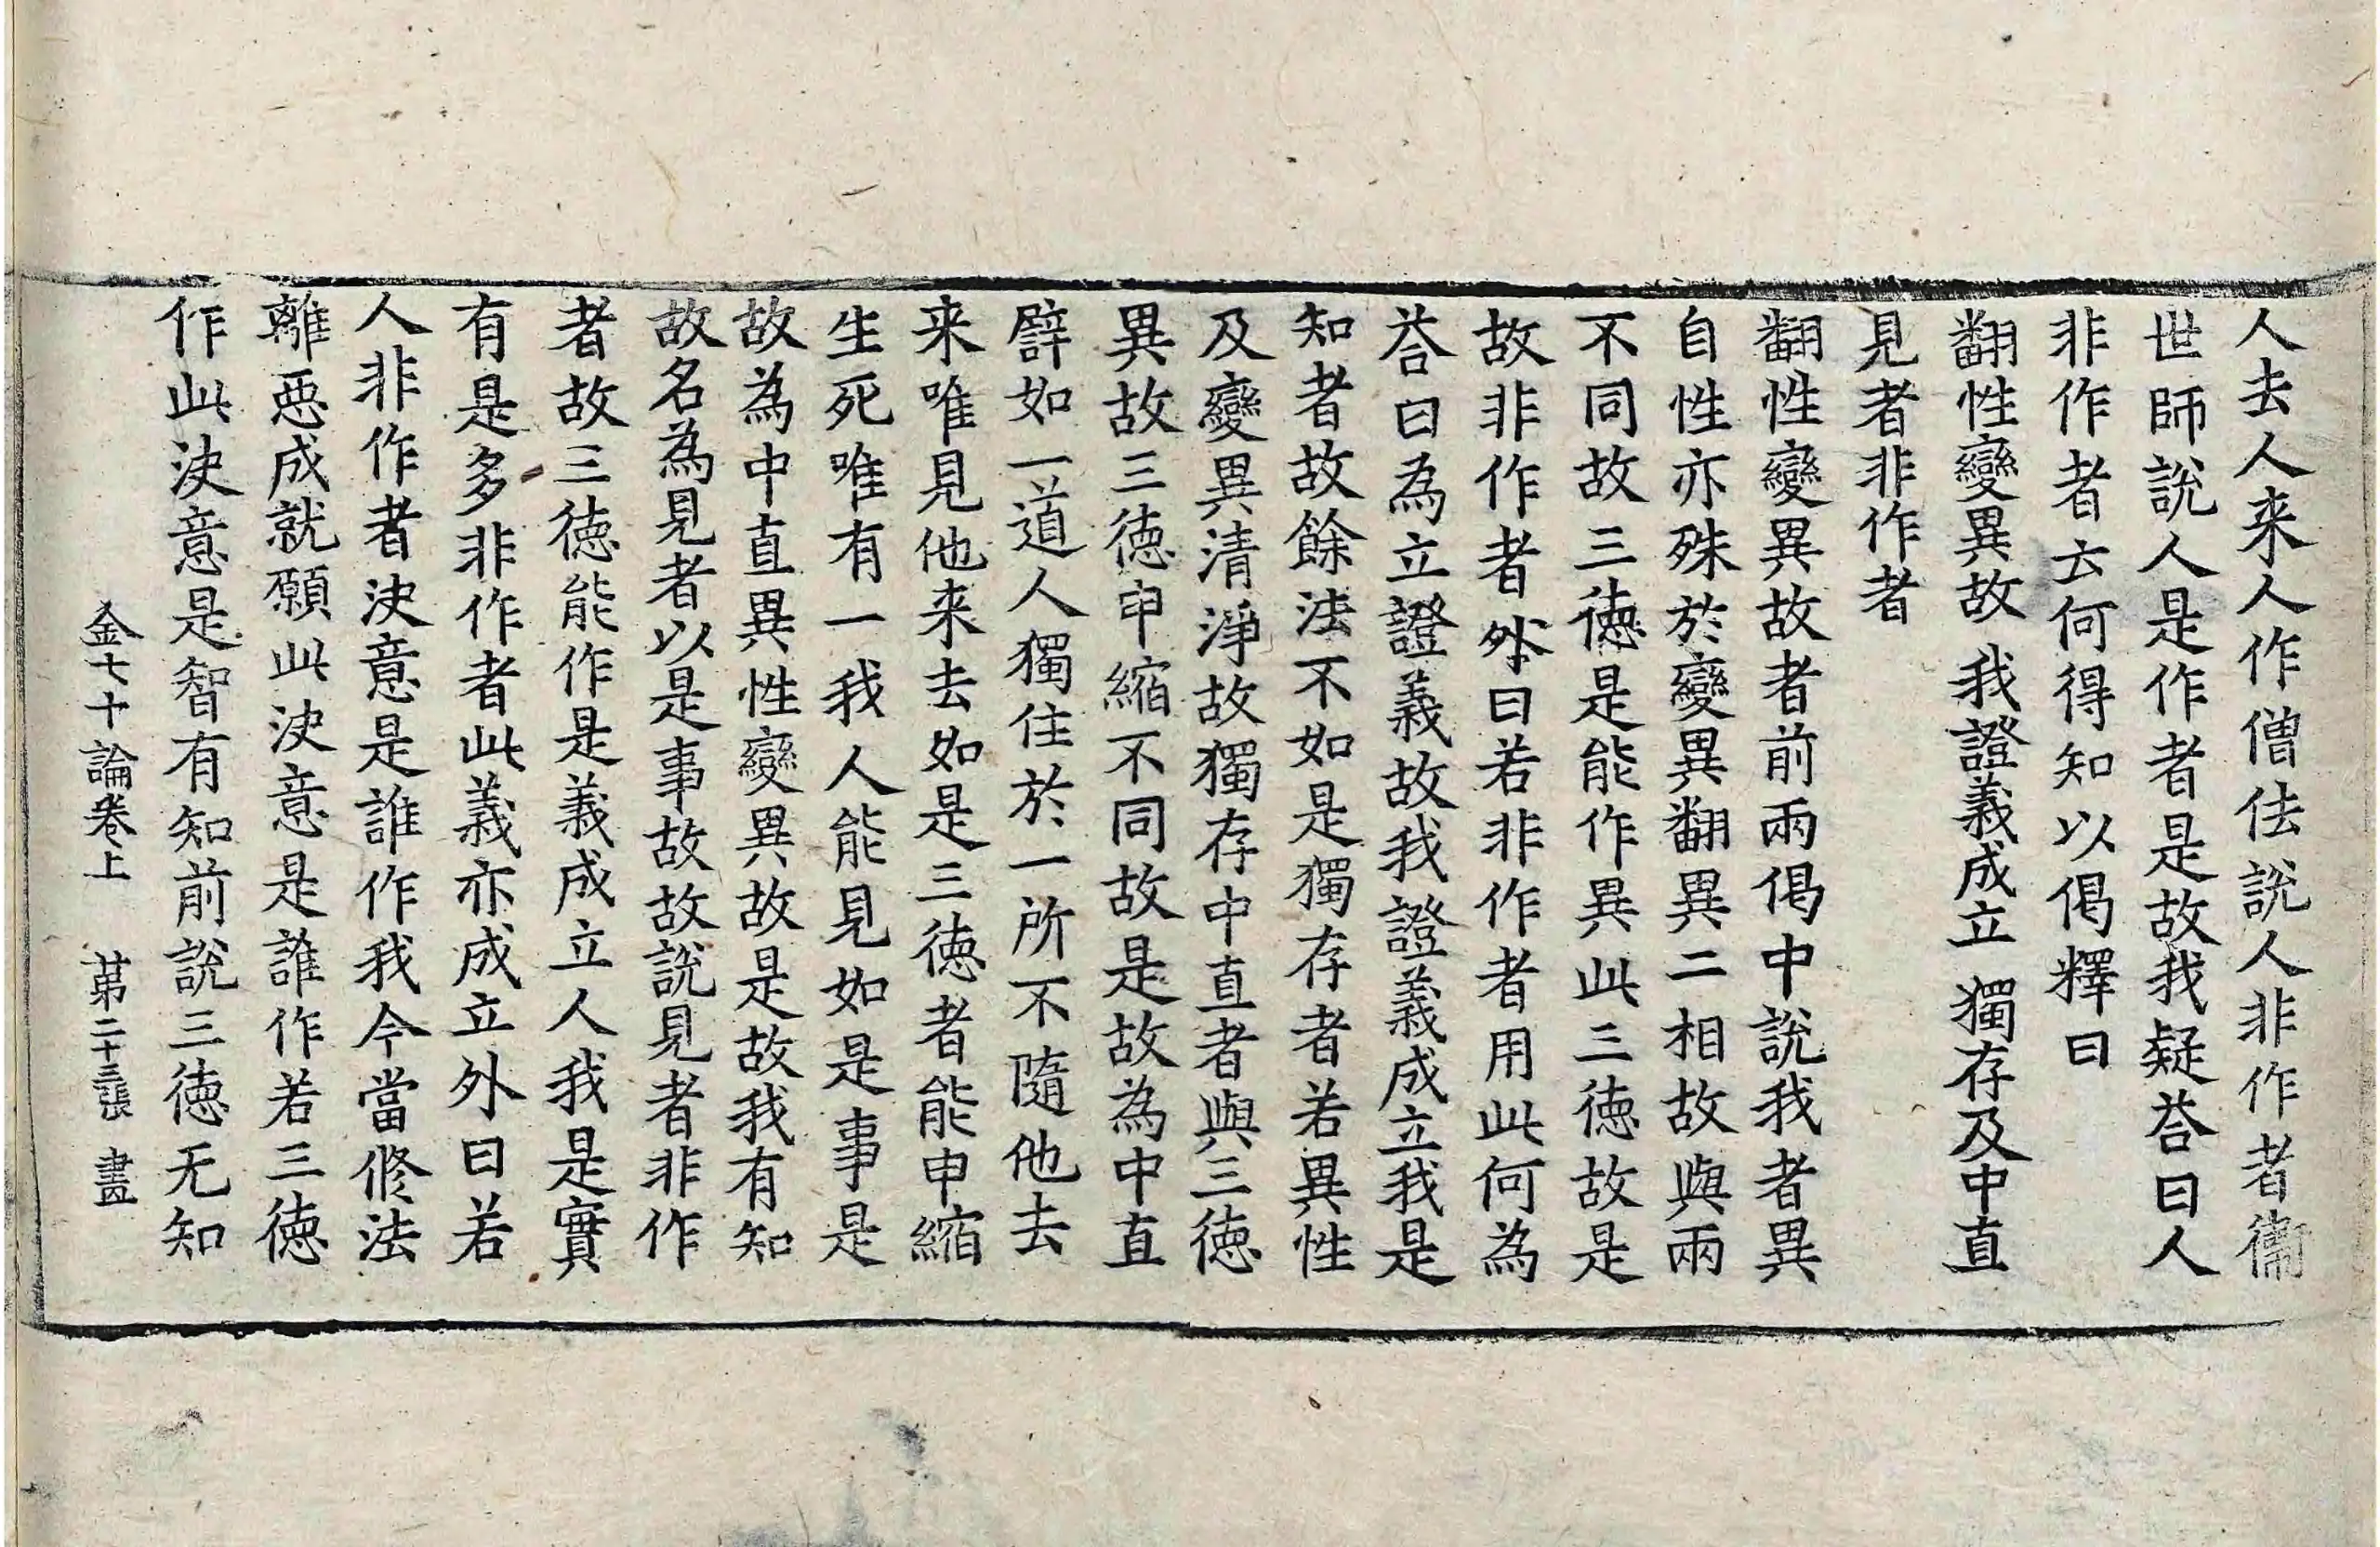 人去人来人作僧佉說人非作者衞
世師說人是作者是故我疑荅曰人
非作者云何得知以偈釋曰
翻性變異故 我證義成立 獨存及中直
見者非作者
翻性變異故者前兩偈中說我者異
自性亦殊於變異翻異二相故與兩
不同故三徳是能作異此三徳故是
故非作者外曰若非作者用此何為
荅曰為立證義故我證義成立我是
知者故餘法不如是獨存者若異性
及變異清淨故獨存中直者與三徳
異故三徳申縮不同故是故為中直
譬如一道人獨住於一所不隨他去
来唯見他来去如是三徳者能申縮
生死唯有一我人能見如是事是
故為中直異性變異故是故我有知
故名為見者以是事故故說見者非作
者故三徳能作是義成立人我是實
有是多非作者此義亦成立外曰若
人非作者決意是誰作我今當修法
離惡成就願此決意是誰作若三徳
作此決意是智有知前說三徳无知
金七十論卷上 苐二十三張 晝